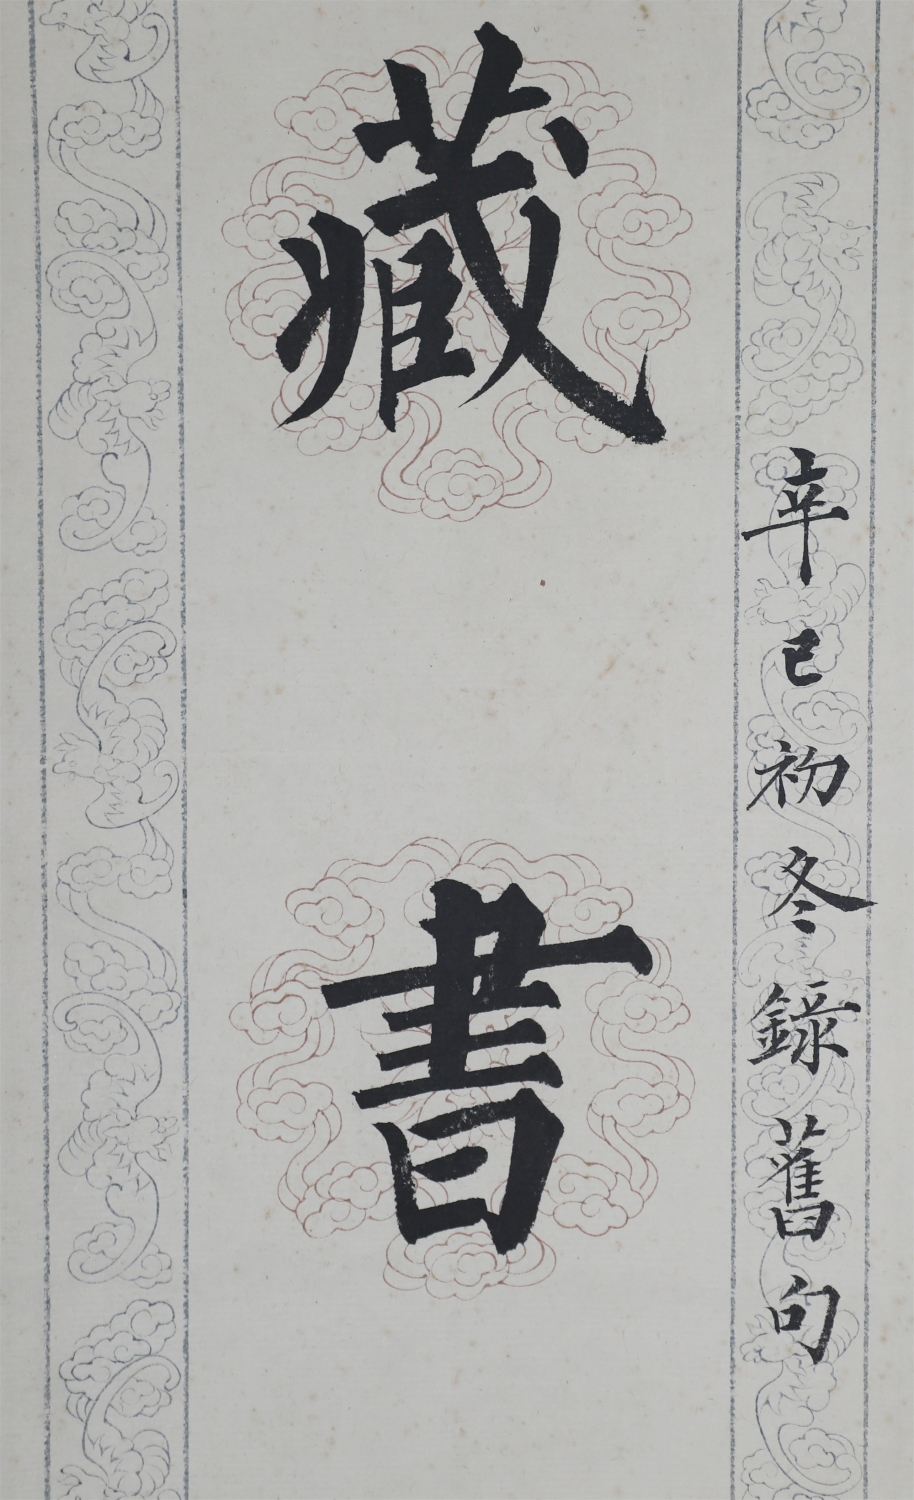 辛巳初冬録舊句
藏書